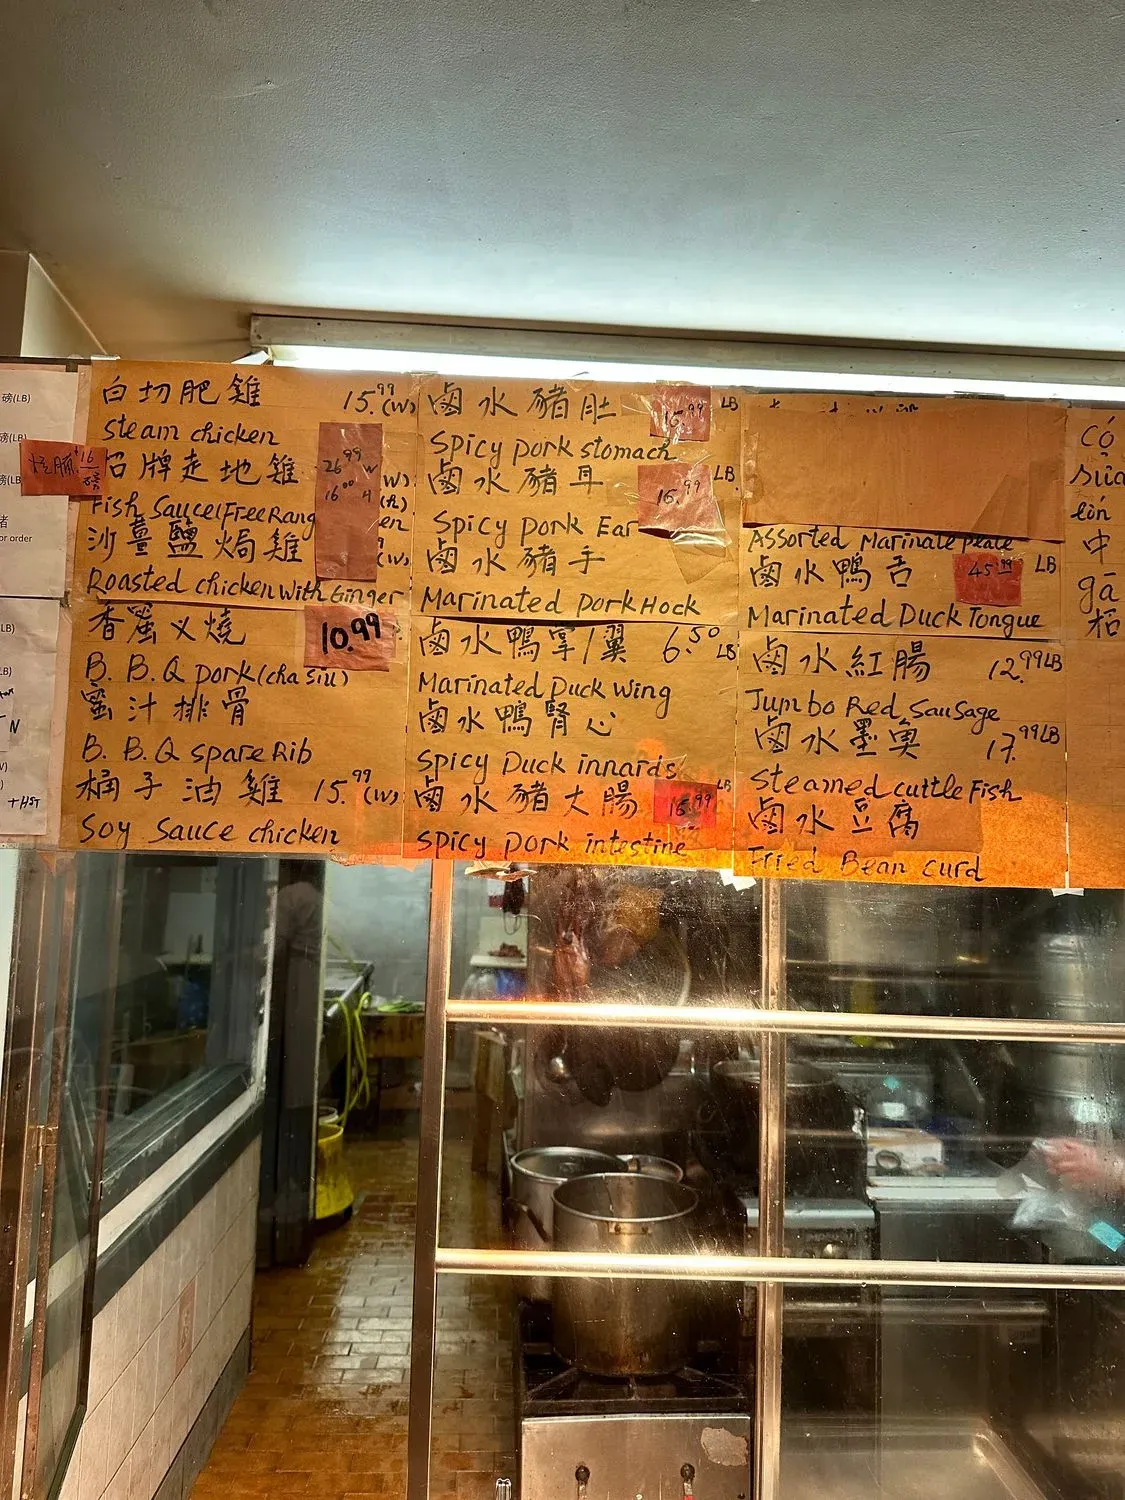 磅(LB)
or order
+HST
白切肥雞 15.99 (W)
Steam chicken
招牌走地雞 26.99 W
16.00 H
Fish Sauce(Free Rang
沙薑鹽焗雞 (W)
Roasted chicken With Ginger
香蜜义燒 10.99
B. B. Q pork(cha Siu)
蜜汁排骨
B. B. Q spare Rib
桶子油雞 15.99 (W)
Soy Sauce chicken
鹵水豬肚 LB
Spicy pork stomach
鹵水豬耳 LB
Spicy pork Ear
鹵水豬手
Marinated pork Hock
鹵水鴨掌/翼 6.50 LB
Marinated Duck Wing
鹵水鴨腎心
Spicy Duck innards
鹵水豬大腸 16.99 LB
Spicy pork intestine
Assorted Marinate plate
鹵水鴨舌 45.99 LB
Marinated Duck Tongue
鹵水紅腸 12.99 LB
Jumbo Red Sausage
鹵水墨魚 17.99 LB
Steamed cuttle Fish
鹵水豆腐
Fried Bean curd
CÓ
中